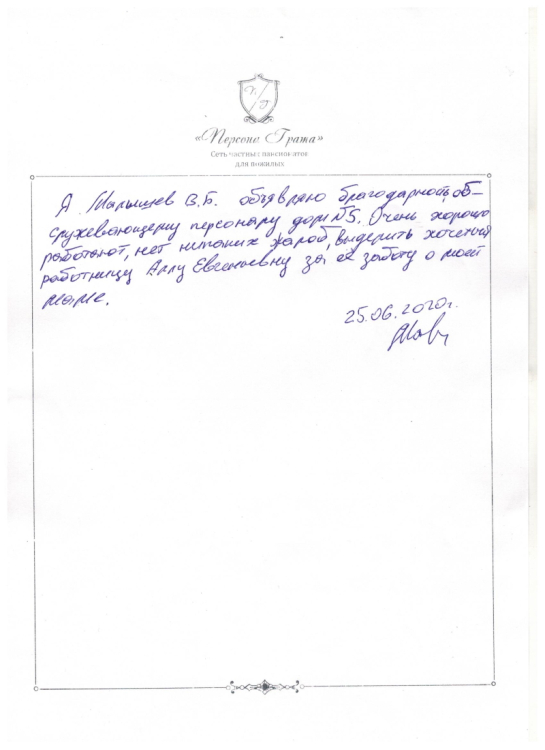 «Персона Грата»
Сеть частных пансионатов
для пожилых
Я Малышев В.Б. объявляю благодарность об-
служевающему персоналу дом №5. Очень хорошо
работают, нет никаких жалоб, выделить хочется
работницу Аллу Евгеньевну за её заботу о моей
маме.
25.06.2020г.